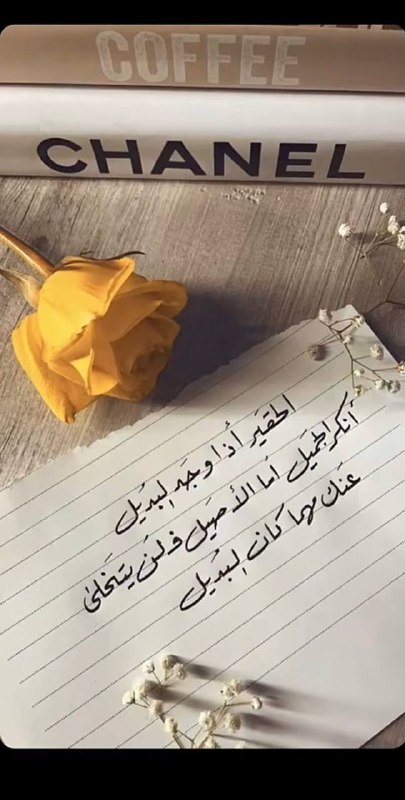 COFFEE
CHANEL
الحقير أذا وجد البديل
أنكر الجميل أما الأصيل فلن يتخلى
عنك مهما كان البديل